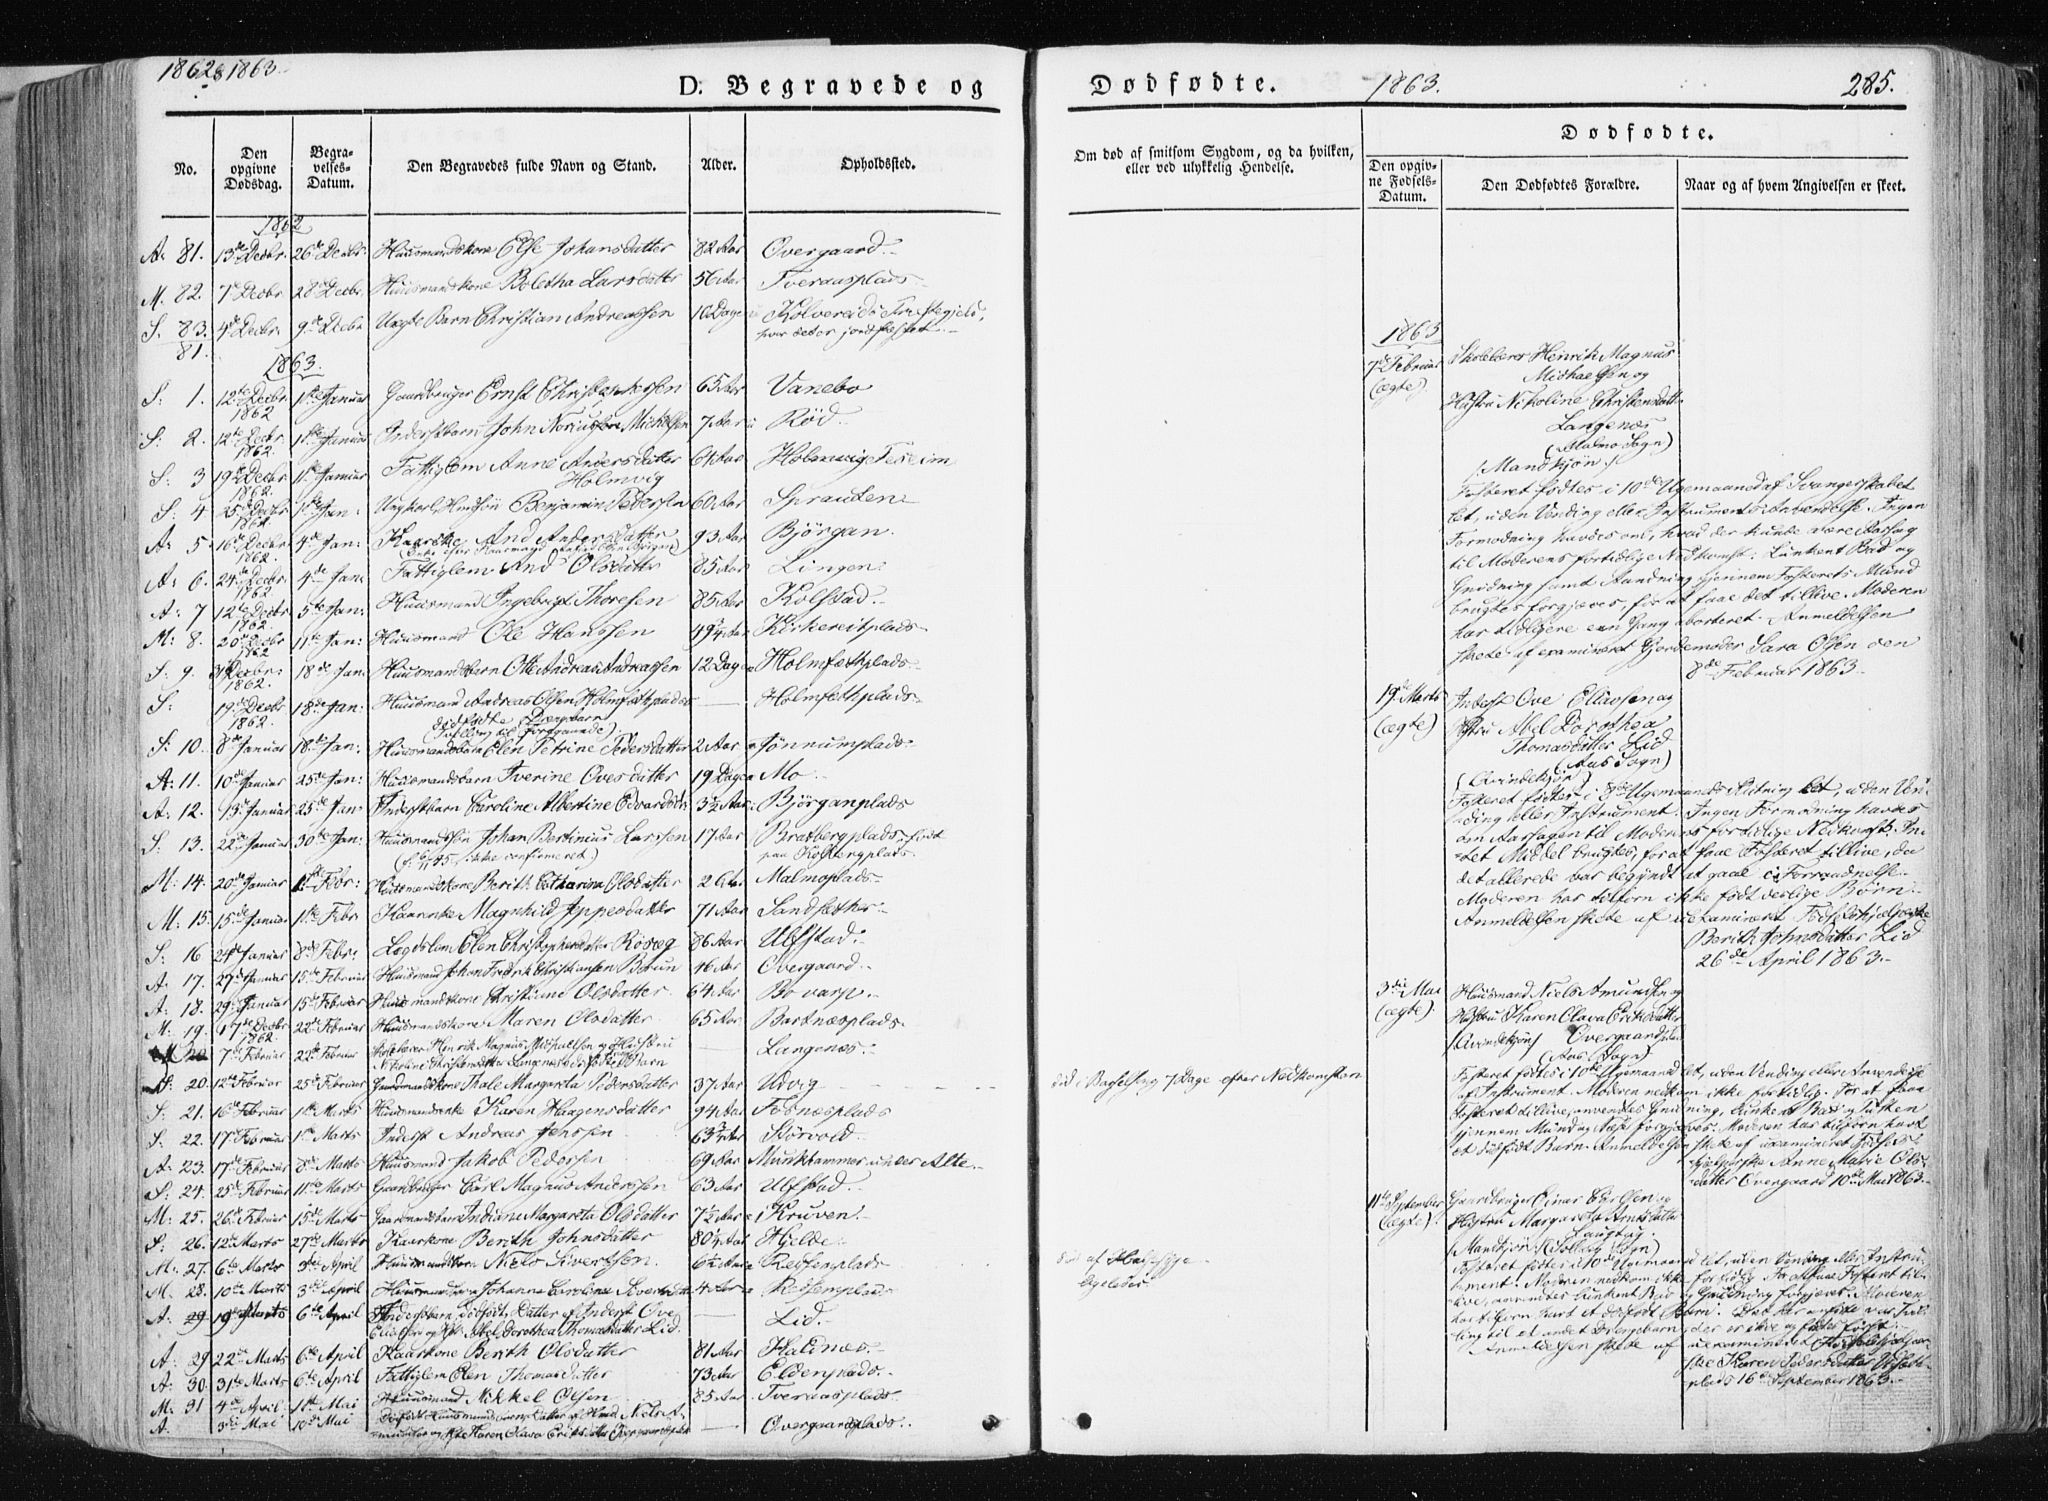 1862 & 1863.
D. Begravede og
No.
Den opgivne Dødsdag.
Begravelses-Datum.
Den Begravedes fulde Navn og Stand.
Alder.
Opholdssted.
1862
A: 81. 13de Decbr. 26de Decbr. Huusmandskone Else Johansdatter 82 Aar Overgaard.
M. 82. 7de Decbr 28de Decbr. Huusmandskone Boletha Larsdatter 56 Aar Tveraasplads.
S. 83. 4de Decbr. 9de Decbr Uægte Barn Christian Andreassen 10 Dage Kolvereids Præstegjeld,
hvor det er jordfæstet.
81.
1863.
S: 1. 12te Decbr. 1862 1ste Januar Gaardbruger Ernst Christophersen 65 Aar Vanebo
S: 2. 12te Decbr. 1862. 1ste Januar Inderstbarn John Michelsen 7 Aar Röd.
S: 3 19de Decbr. 1862. 1ste Januar Fattiglem Anne Andersdatter Holmvig 61 Aar Holmvig
S: 4 25de Decbr 1862. 1ste Jan: Ungkarl Benjamin Pedersen 60 Aar Sprauten
A: 5. 16de Decbr. 1862. 4de Jan: Kaarenke And Andersdatter 93 Aar Björgan.
A: 6. 24de Decbr. 1862 4de Jan: Fattiglem And Olsdatter 85 Aar Lingen:
A: 7 12te Decbr. 1862. 5te Jan: Huusmand Ingebrigt Thoresen 85 Aar Kolstad.
M: 8. 20de Decbr. 1862 11te Jan: Huusmand Ole Hanssen 49 1/4 Aar Kirkereitplads
S: 9. 31 Decbr: 1862. 18de Jan: Huusmandsbarn Otto Andreas Andreassen 12 Dage Holmsethplads.
S: 19de Decbr 1862. 18de Jan: Huusmand Andreas Olsen Holmsethplads — Holmsethplads.
dödfödte Drengebarn
(Tvilling til Foregaaende)
S: 10. 8de Januar 18de Jan: Huusmandsbarn Elen Petrine Pedersdatter 2 Aar Jönnumplads.
A: 11. 10de Januar 25de Jan: Huusmandsbarn Iverine Ovesdatter 19 Dage Mo.
A: 12. 13de Januar 25de Jan: Inderstbarn Caroline Albertine Edvardsdtr 3 1/2 Aar: Björganplads
S: 13. 22de Januar 30de Jan: Huusmandssön Johan Bertinius Larssen 17 Aar Bratbergplads födt
(ikke confirmeret) paa Kolbergplads.
M: 14. 20de Januar 1ste Febr: Huusmandskone Berith Catharina Olsdatter 26 Aar Malmoplads.
M: 15. 15de Januar 1ste Febr Kaarenke Magnhild Jeppesdatter 71 Aar Landsether.
S: 16 24de Januar 8de Febr: Lægdslem Elen Christophersdatter Röseg 86 Aar Ulfstad.
A: 17. 27de Januar 15de Februar Huusmand Johan Fredrik Christiansen Borun 46 Aar Overgaard.
A: 18. 29de Januar 15de Februar Huusmandskone Christiane Olsdatter. 64 Aar Bovarp.
M. 19. 17de Decbr 1862. 22de Februar Huusmandskone Maren Olsdatter. 65 Aar Bartnæsplads.
7de Februar 22de Februar Skolelærer Henrik Magnus Michaelsen og Hustru — Langenæs.
Nikoline Christensdatter Langenæs dödfödte Barn
A: 20. 12te Februar 25de Februar Gaardmandskone Thale Margareta Pedersdatter 37 Aar Udvig
S: 21. 16de Februar 1ste Marts Huusmandsenke Karen Haagensdatter 94 Aar Fosnæsplads
S: 22. 17de Februar 1ste Marts Inderst Andreas Jenssen 63 3/4 Aar Störvold.
A: 23. 17de Februar 8de Marts Huusmand Jakob Pedersen 69 Aar Munkhammer under Alte.
S: 24. 25de Februar 11te Marts Gaardbruger Carl Magnus Anderssen 63 Aar Ulfstad.
M: 25. 26de Februar 15de Marts Gaardmandsbarn Indiane Margareta Olsdatter 7 1/2 Aar Kruven.
S: 26. 12te Marts 27de Marts Kaarkone Berith Johnsdatter 80 3/4 Aar Hjelde.
M: 27. 6te Marts 3die April Huusmandsbarn Nielo Sivertsen. 6 1/2 Aar Redsemplads
M: 28. 10de Marts 3die April Johanna Caroline Sivertsdatter 4 Aar Redsemplads
A: 29 19de Marts 6te April Inderstbarn dödfödt Datter af Inderst Ove — Lid.
Eliassen og Hst. Abel Dorothea Thomasdatter Lid.
A: 29 22de Marts 6te April Kaarkone Berith Olsdatter 81 Aar Kaldnæs.
A: 30. 31te Marts 6te April Fattiglem Elen Thomasdatter 73 Aar Eldenplads.
M: 31 4de April 1ste Mai Huusmand Nikkel Olsen 85 Aar. Tveraasplads
A: 3die Mai 10de Mai dödfödt Huusmands Datter af Hmd Niels A- — Overgaardplads.
mundsen og Hst Karen Olava Eriksdtr Overgaardsplads
Dødfødte.
1863.
285.
Om død af smitsom Sygdom, og da hvilken, eller ved ulykkelig Hendelse.
Dødfødte.
Den opgivne Fødsels-Datum.
Den Dødfødtes Forældre.
Naar og af hvem Angivelsen er skeet.
död i Barselseng 7 Dage efter Nedkomsten
död af
1863
7de Februar Skolelærer Henrik Magnus
(ægte) Michaelsen og
Hustru Nikoline Christensdatter
Langenæs
(Malmo Sogn)
(Mandkjön.)
Fosteret födtes i 10de Ugemaaned af Svangerskabet
let, uden Vending eller Instruments Anvendelse. Ingen
Formodning havdes om, hvad der kunde være Aarsag
til Moderens fortidlige Nedkomst. Lunkent Bad og
Gnidning samt Aandning gjennem Fosterets Mund
brugtes forgjæves, for at faae det tillive. Moderen
har tidligere een Gang aborteret. Anmeldelsen
skete af examineret Gjordemoder Sara Olsen den
8de Februar 1863.
19de Marts Inderst Ove Eliassen og
(ægte) Hstru Abel Dorothea
Thomasdatter Lid
(Aas Sogn)
(Qvindekjön)
Fosteret födtes i 8de Ugemaaned let, uden Ven-
ding eller Instrument. Ingen Formodning havdes
om Aarsagen til Moderens fortidlige Nedkomst. In-
tet Middel brugtes, for at faae Fosteret tillive, da
det allerede var begyndt at gaae i Forraadnelse.
Moderen har tilforn ikke födt deslige Börn.
Anmeldelsen skete af uexamineret Födselshjælperske
Berith Johnsdatter Lid
26de April 1863.
3die Mai Huusmand Niels Amundsen og
(ægte). Hustru Karen Olava Eriksdatter
(Qvindekjön) Overgaardsplads
(Aas Sogn)
Fosteret födtes i 10de Ugemaaned let, uden Vending eller Anvendelse
af Instrument. Moderen nedkom ikke fortidlig. For at faae
Fosteret tillive, anvendtes Gnidning, lunkent Bad og Pusten
gjennem Mund og Næse forgjæves. Moderen har tilforn havt
et dödfödt Barn. Anmeldelsen skete af uexamineret Födsels-
hjælperske Anne Marie Ols-
datter Overgaard 10de Mai 1863.
11te September Gaardbruger Einar Carlsen og
(ægte). Hustru Margareta Arntsdatter
Langhag.
(Mandkjön) (Solberg Sogn)
Fosteret födtes i 10de Ugemaaned let, uden Vending eller Instru-
ment. Moderen nedkom ikke fortidlig. For at faae Fosteret til-
live, anvendtes lunkent Bad og Gnidning forgjæves. Moderen
har tilforn havt et dödfödt Barn. Dette var Tvil-
ling til et andet Drengebarn, der
Anmeldelsen skete af uexamineret Födselshjælper-
ske Karen Pedersdatter
plads 16de September 1863.